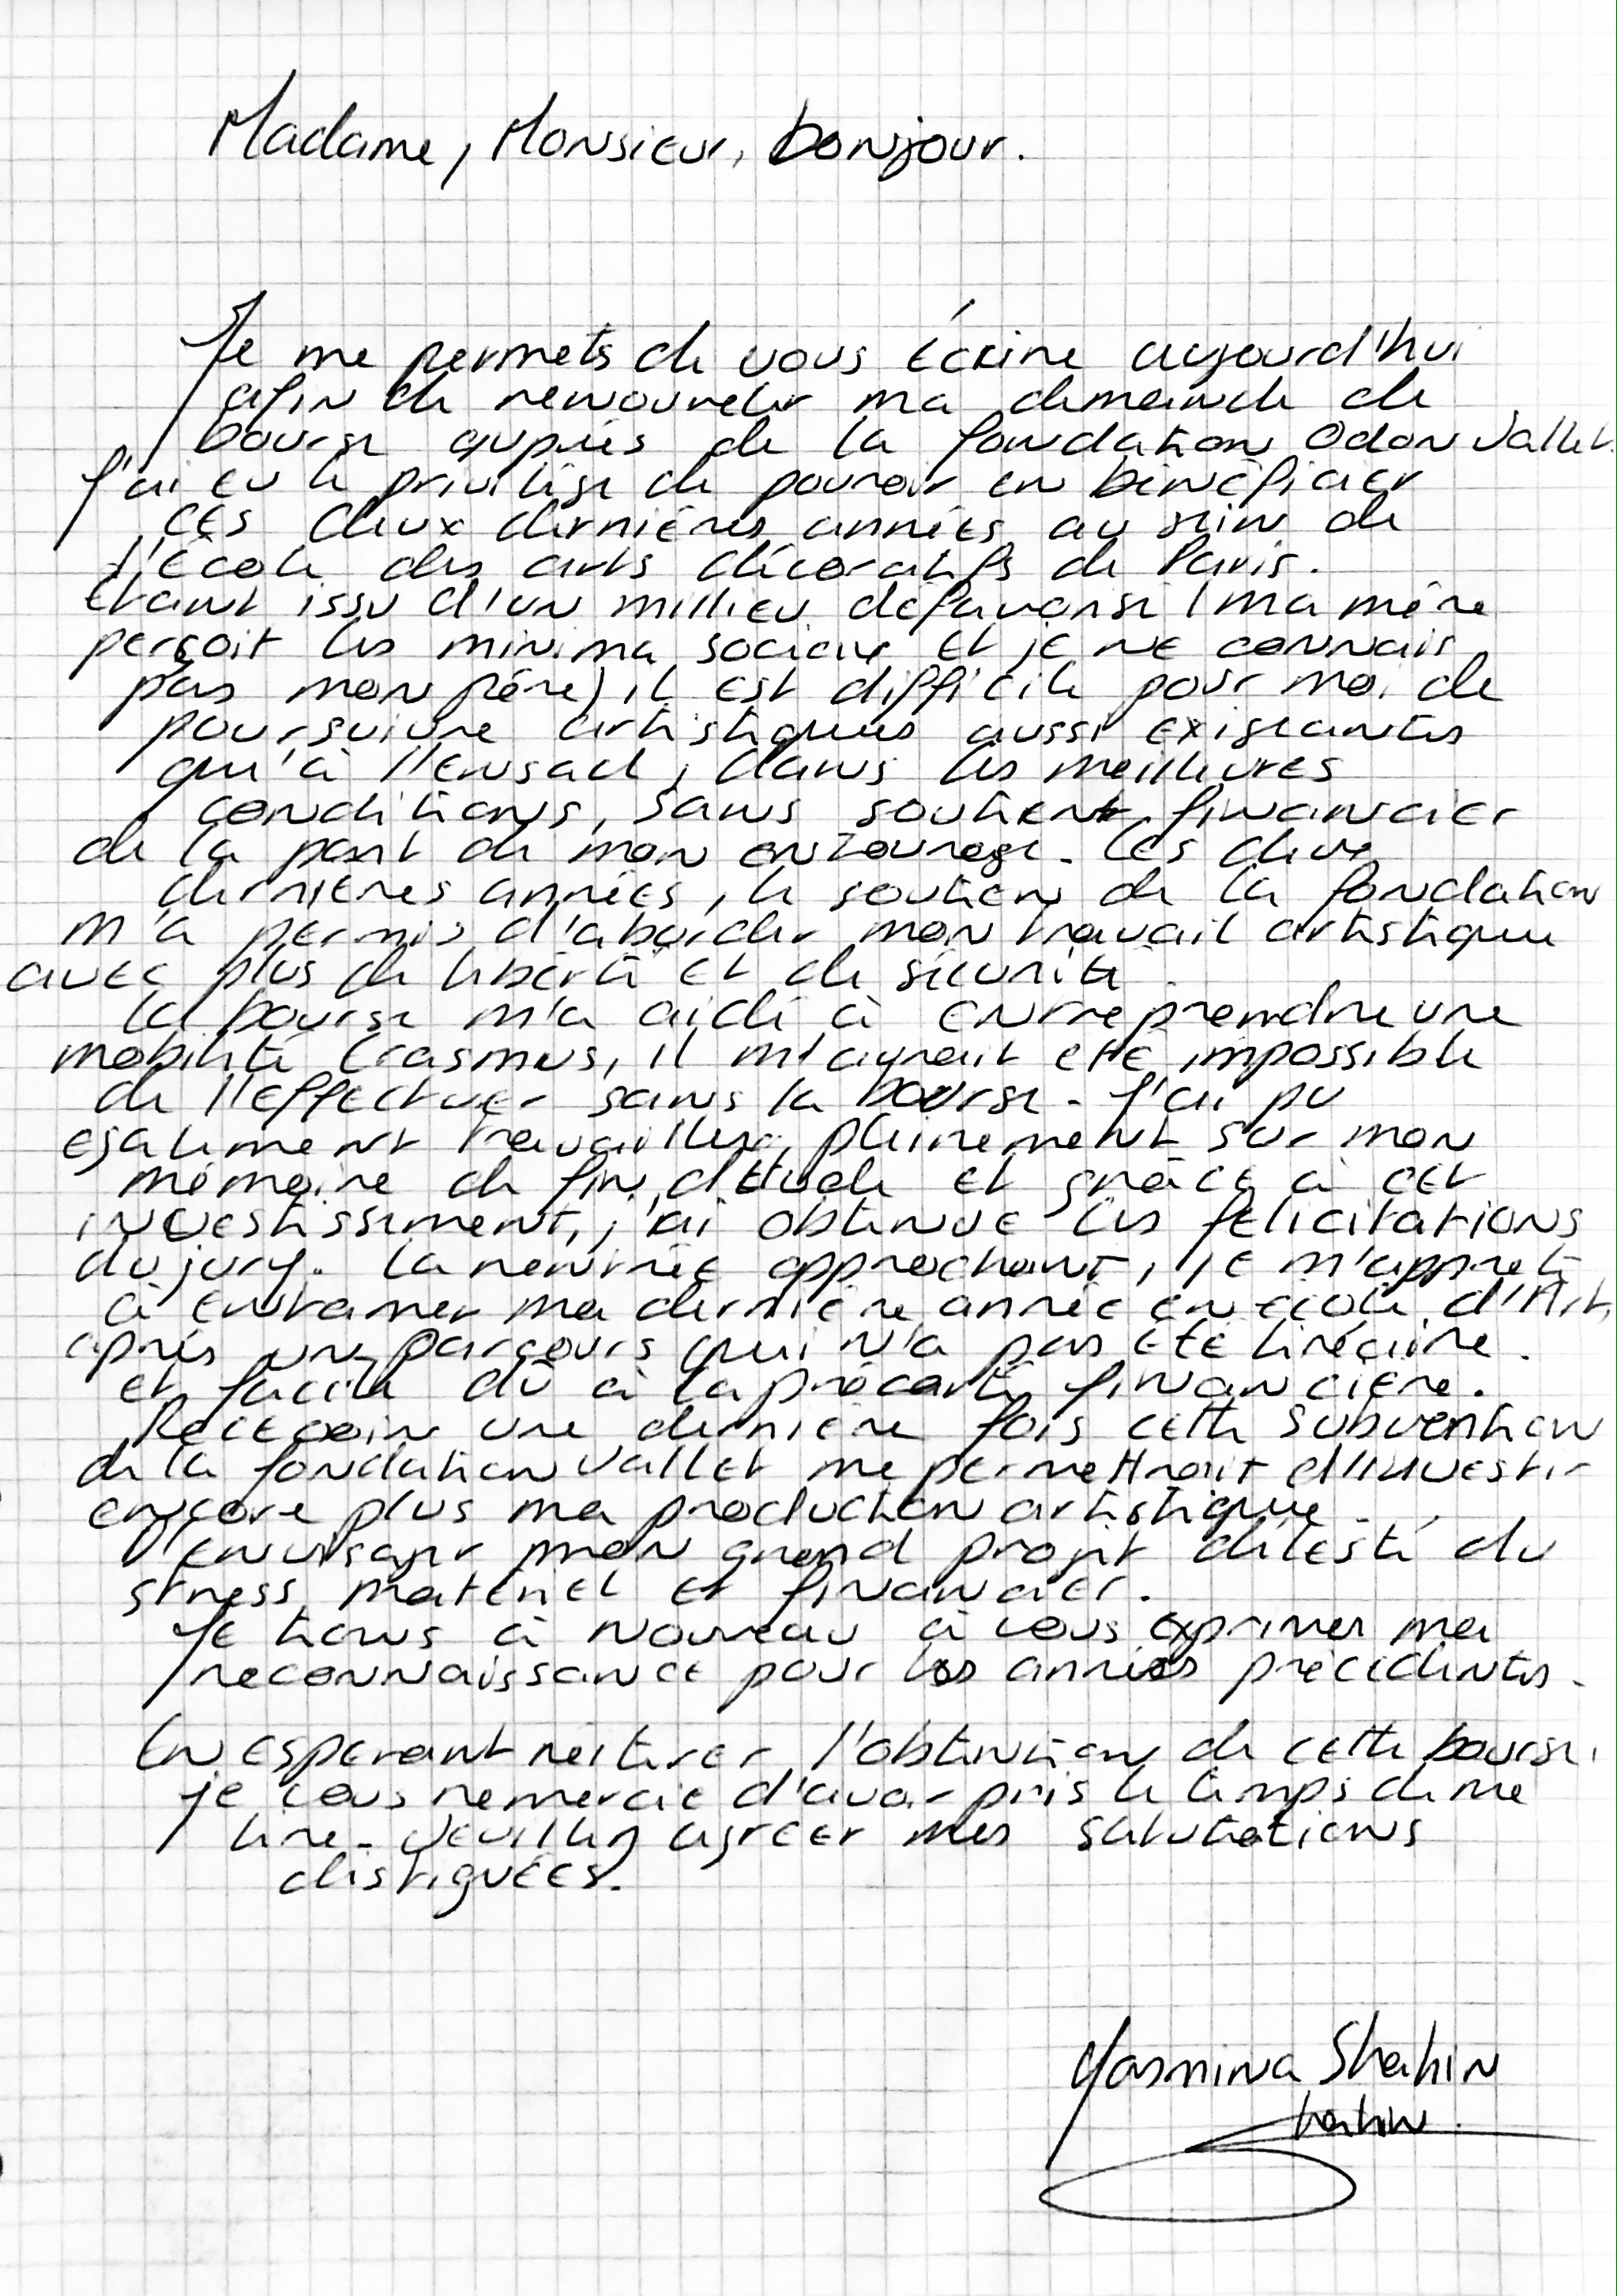 Madame, Monsieur, bonjour.
Je me permets de vous écrire aujourd'hui
afin de renouveler ma demande de
bourse auprès de la fondation Odon Vallet.
J'ai eu le privilège de pouvoir en bénéficier
ces deux dernières années au sein de
l'école des arts décoratifs de Paris.
Etant issu d'un millieu défavorisé (ma mère
perçoit les minima sociaux et je ne connais
pas mon père) il est difficile pour moi de
poursuivre artistiques aussi exigeantes
qu'à l'ensad, dans les meilleures
conditions, sans soutient financier
de la part de mon entourage. Ces deux
dernières années, le soutien de la fondation
m'a permis d'aborder mon travail artistique
avec plus de liberté et de sécurité.
La bourse m'a aidé à entreprendre une
mobilité Erasmus, il m'aurait été impossible
de l'effectuer sans la bourse. J'ai pu
egalement travailler pleinement sur mon
mémoire de fin d'étude et grâce à cet
investissement, j'ai obtenue les félicitations
du jury. La rentrée approchant, je m'apprète
à entamer ma dernière année en école d'Art,
après un parcours qui n'a pas été linéaire.
et facile dû à la précarité financière.
Recevoir une dernière fois cette subvention
de la fondation Vallet me permettrait d'investir
encore plus ma production artistique.
envisager mon grand projet délesté du
stress matériel et financier.
Je tiens à nouveau à vous exprimer ma
reconnaissance pour les années précédentes.
En esperant réitérer l'obtention de cette bourse,
je vous remercie d'avoir pris le temps de me
lire. Veuillez agréer mes salutations
distiguées.
Yasmina Shahin
Shahin